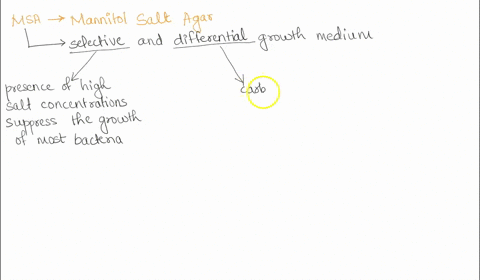 MSA → Mannitol Salt Agar
→ selective and differential growth medium
presence of high
salt concentrations
suppress the growth
of most bacteria
carb